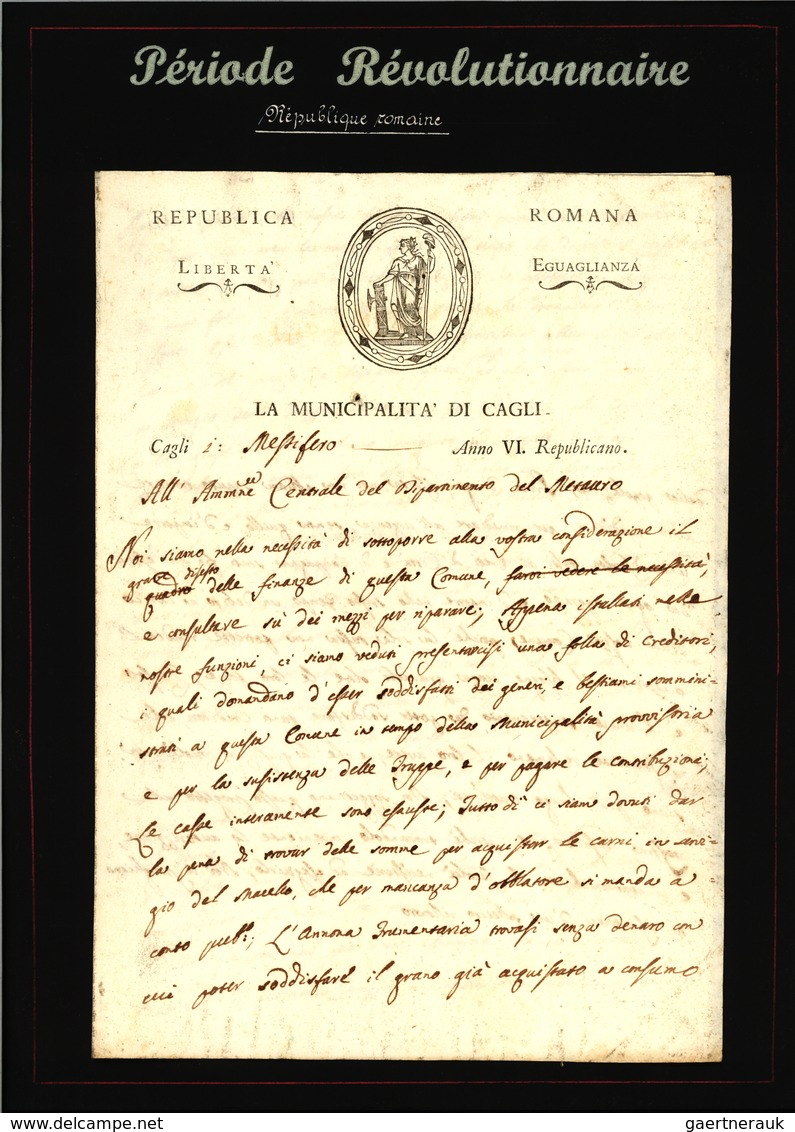 Période Révolutionnaire
République romaine
REPUBLICA ROMANA
LIBERTA' EGUAGLIANZA
LA MUNICIPALITA' DI CAGLI.
Cagli 1: Messifero Anno VI. Republicano.
All' Ammne Centrale del Dipartimento del Metauro
Noi siamo nella necessità di sottoporre alla vostra considerazione il
grave disesto
quadro delle finanze di questa Comune, farvi vedere la necessità,
e consultare sù dei mezzi per riparare; Appena istallati nelle
nostre funzioni, ci siamo veduti presentarcisi una folla di Creditori,
i quali domandano d'esser soddisfatti dei generi, e bestiami sommini-
strati a questa Comune in tempo della Municipalità provvisoria
e per la susistenza delle Truppe, e per pagare le contribuzioni;
Le casse interamente sono esauste; Tutto dì ci siam dovuti dar
la pena di trovar delle somme per acquistar le carni, in servi-
gio del Macello, che per mancanza d'obblatore si manda a
conto pubo; L'Annona Frumentaria trovasi senza denaro con
cui poter soddisfare il grano già acquistato a consumo
delcampe.net gaertnerauk